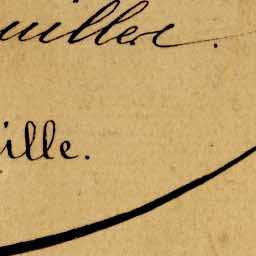 uillet.
ille.